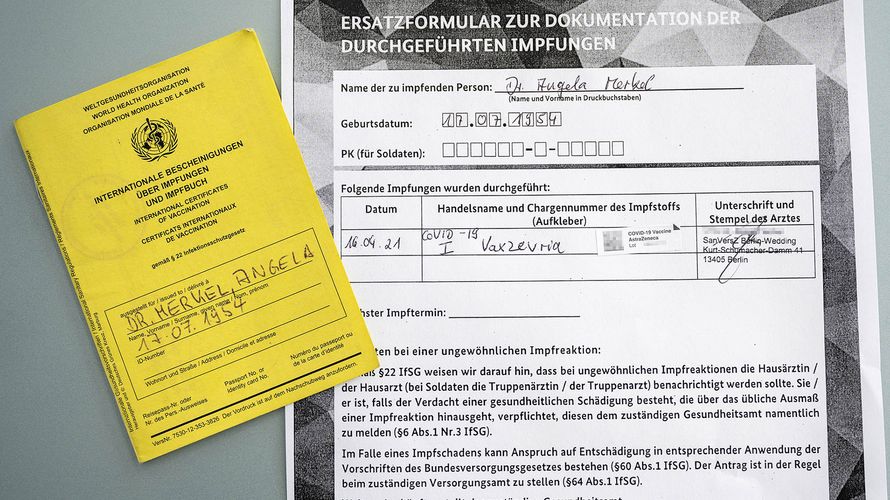 WELTGESUNDHEITSORGANISATION
WORLD HEALTH ORGANIZATION
ORGANISATION MONDIALE DE LA SANTÉ
INTERNATIONALE BESCHEINIGUNGEN
ÜBER IMPFUNGEN
UND IMPFBUCH
INTERNATIONAL CERTIFICATES
OF VACCINATION
CERTIFICATS INTERNATIONAUX
DE VACCINATION
gemäß § 22 Infektionsschutzgesetz
ausgestellt für / issued to / délivré à
DR. MERKEL, ANGELA
Name, Vorname / Surname, given name / Nom, prénom
17.07.1954
ID-Number
Wohnort und Straße / Address / Domicile et adresse
Reisepass-Nr. oder
Nr. des Pers.-Ausweises
Passport No. or
Identity card No.
Numéro du passeport ou
de la carte d'identité
VersNr. 7530-12-353-3826 Der Vordruck ist auf dem Nachschubweg anzufordern.
ERSATZFORMULAR ZUR DOKUMENTATION DER
DURCHGEFÜHRTEN IMPFUNGEN
Name der zu impfenden Person: Dr. Angela Merkel
(Name und Vorname in Druckbuchstaben)
Geburtsdatum: 17.07.1954
PK (für Soldaten):
Folgende Impfungen wurden durchgeführt:
Datum
Handelsname und Chargennummer des Impfstoffs
(Aufkleber)
Unterschrift und
Stempel des Arztes
16.04.21
COVID-19
I Vaxzevria
COVID-19 Vaccine
AstraZeneca
Lot
SanVersZ Berlin-Wedding
Kurt-Schumacher-Damm 41
13405 Berlin
hster Impftermin:
ten bei einer ungewöhnlichen Impfreaktion:
äß §22 IfSG weisen wir darauf hin, dass bei ungewöhnlichen Impfreaktionen die Hausärztin /
der Hausarzt (bei Soldaten die Truppenärztin / der Truppenarzt) benachrichtigt werden sollte. Sie /
er ist, falls der Verdacht einer gesundheitlichen Schädigung besteht, die über das übliche Ausmaß
einer Impfreaktion hinausgeht, verpflichtet, diesen dem zuständigen Gesundheitsamt namentlich
zu melden (§6 Abs.1 Nr.3 IfSG).
Im Falle eines Impfschadens kann Anspruch auf Entschädigung in entsprechender Anwendung der
Vorschriften des Bundesversorgungsgesetzes bestehen (§60 Abs.1 IfSG). Der Antrag ist in der Regel
beim zuständigen Versorgungsamt zu stellen (§64 Abs.1 IfSG).